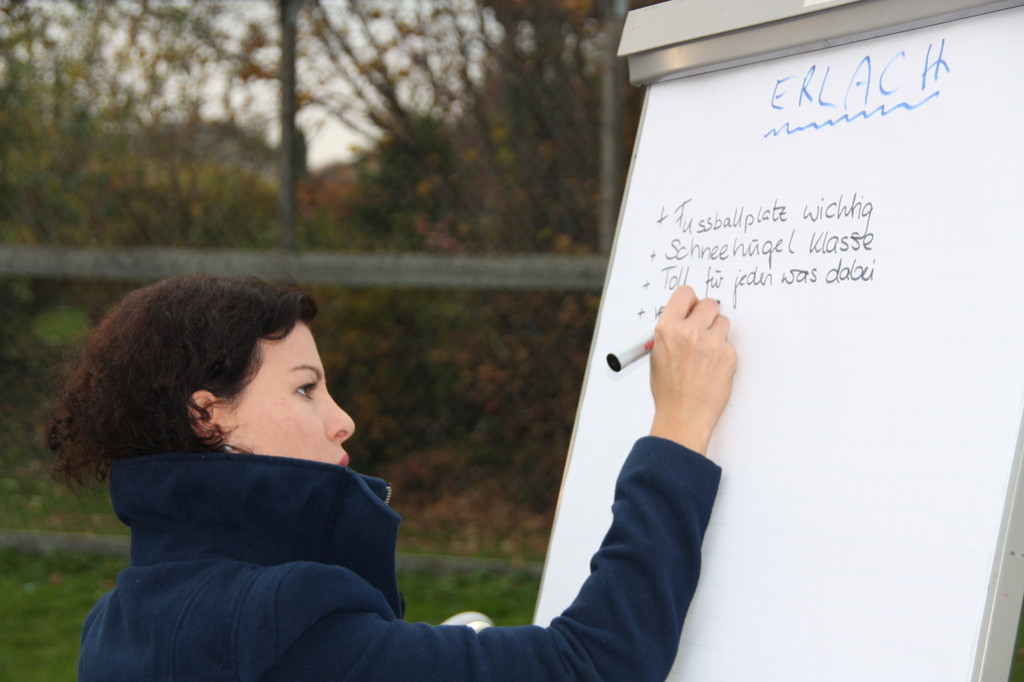 ERLACH
+ Fussballplatz wichtig
+ Schneehügel Klasse
+ Toll für jeden was dabei
+